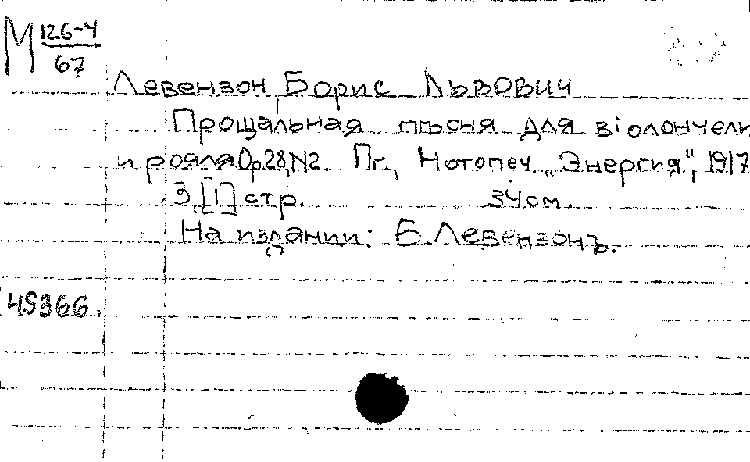 М 126-4
67
Левензон Борис Львович
Прощальная пѣсня для віолончели
и рояля Op.28,N2. Пг., Нотопеч. „Энергия", 1917
3, [1] стр. 34 см.
На издании: Б. Левензонъ.
45366.